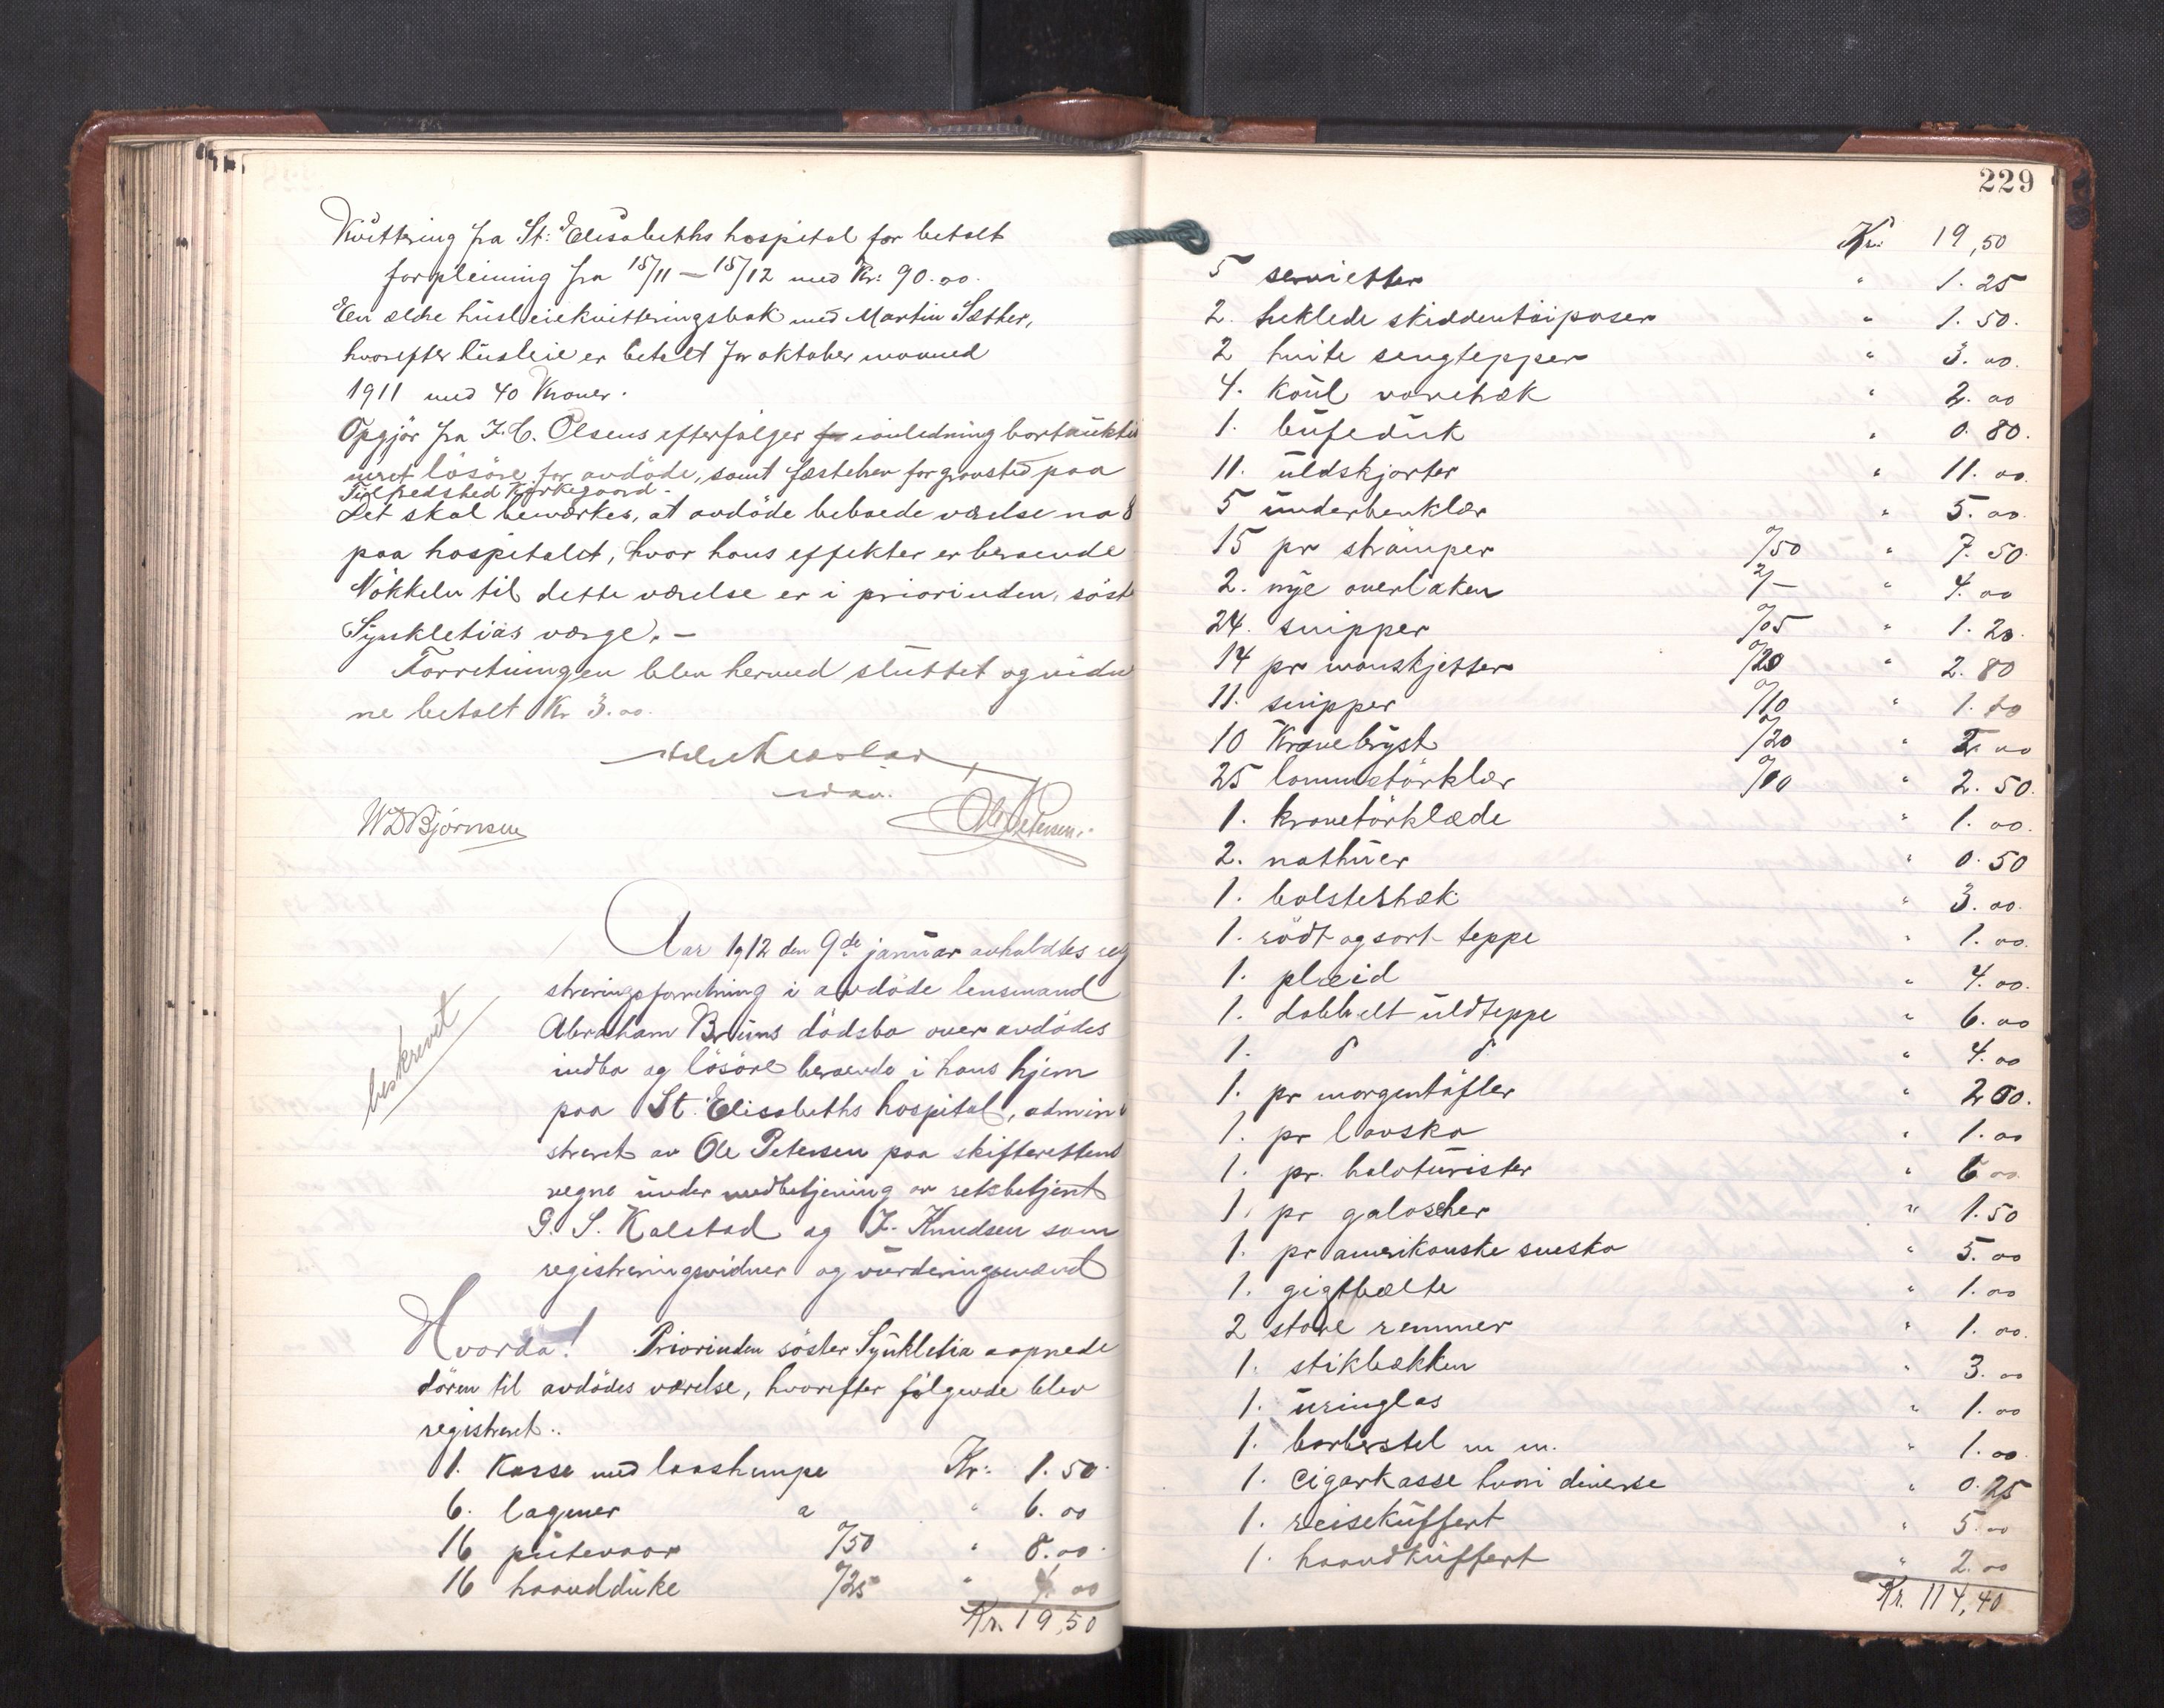 Kvittering fra St: Elisabeths hospital for betalt
forpleining fra 15/11 — 15/12 med Kr: 90.00.
En ældre husleiekvitteringsbok med Martin Sæther,
hvorefter husleie er betalt for oktober maaned
1911 med 40 Kroner.
Opgjör fra J. C. Olsens efterfølger anledning bortauktio
neret lösöre for avdöde, samt fæstebrev for gravsted paa
Kirkegaard.
Det skal bemærkes, at avdöde beboede værelse no 8
paa hospitalet, hvor hans effekter er beroende
Nökkelen til dette værelse er i priorinden, söst
Synkletias værge. —
Forretningen blev hermed sluttet og vidn
ne betalt Kr 3.00.
W D Bjørnsen
Ole Petersen
Aar 1912 den 9de januar avholdtes reg
streringsforretning i avdöde lensmand
Abraham Bruns dödsbo over avdödes
indbo og lösöre beroende i hans hjem
paa St. Elisabeths hospital, admini
streret av Ole Petersen paa skifterettens
vegne under medbetjening av retsbetjent
G. S. Kalstad og J. Knudsen som
registreringsvidner og vurderingsmænd
beskrevet
Hvorda! Priorinden söster Synkletia aapnede
dören til avdödes værelse, hvorefter fölgende blev
registreret..
1. Kasse med Kr: 1.50.
6. lagner a " 6.00
16 putevaar a/50 " 8.00.
16 haandduke a/25 " 4.00
Kr. 19,50
229
Kr: 19,50
5 servietter " 1.25
2. heklede skiddentöiposer " 1.50.
2 hvite sengtepper " 3.00.
4. Koul varetræk " 2.00
1. bufeduk " 0.80.
11. uldskjorter " 11.00
5 underbenklær " 5.00
15 pr strömper a/50 " 7.50.
2. nye overlaken 2/– " 4.00
24. snipper a/05 " 1.20.
14 pr manskjetter a/20 " 2.80
11. snipper a/10 " 1.10
10 Kravebryst a/20 " 2.00
25 lommetörklær a/10 " 2.50.
1. kravetörklæde " 1.00.
2. nathuer " 0.50
1. bolstertræk " 3.00.
1. rödt og sort teppe " 1.00.
1. pleid " 4.00.
1. dobbelt uldteppe " 6.00
1. d d " 4.00
1. pr morgentöfler " 2.00.
1. pr lavsko " 1.00
1. pr. halvturister " 6.00
1. pr galoscher " 1.50
1. pr amerikanske snesko " 5.00
1. gigtbælte " 1.00
2 store remmer " 1.00.
1. stikbækken " 3.00
1. uringlas " 1.00
1. barberstel m m. " 1.00.
1. cigarkasse hvori diverse " 0.25
1. reisekuffert " 5.00
1. haandkuffert " 2.00
Kr. 114,40